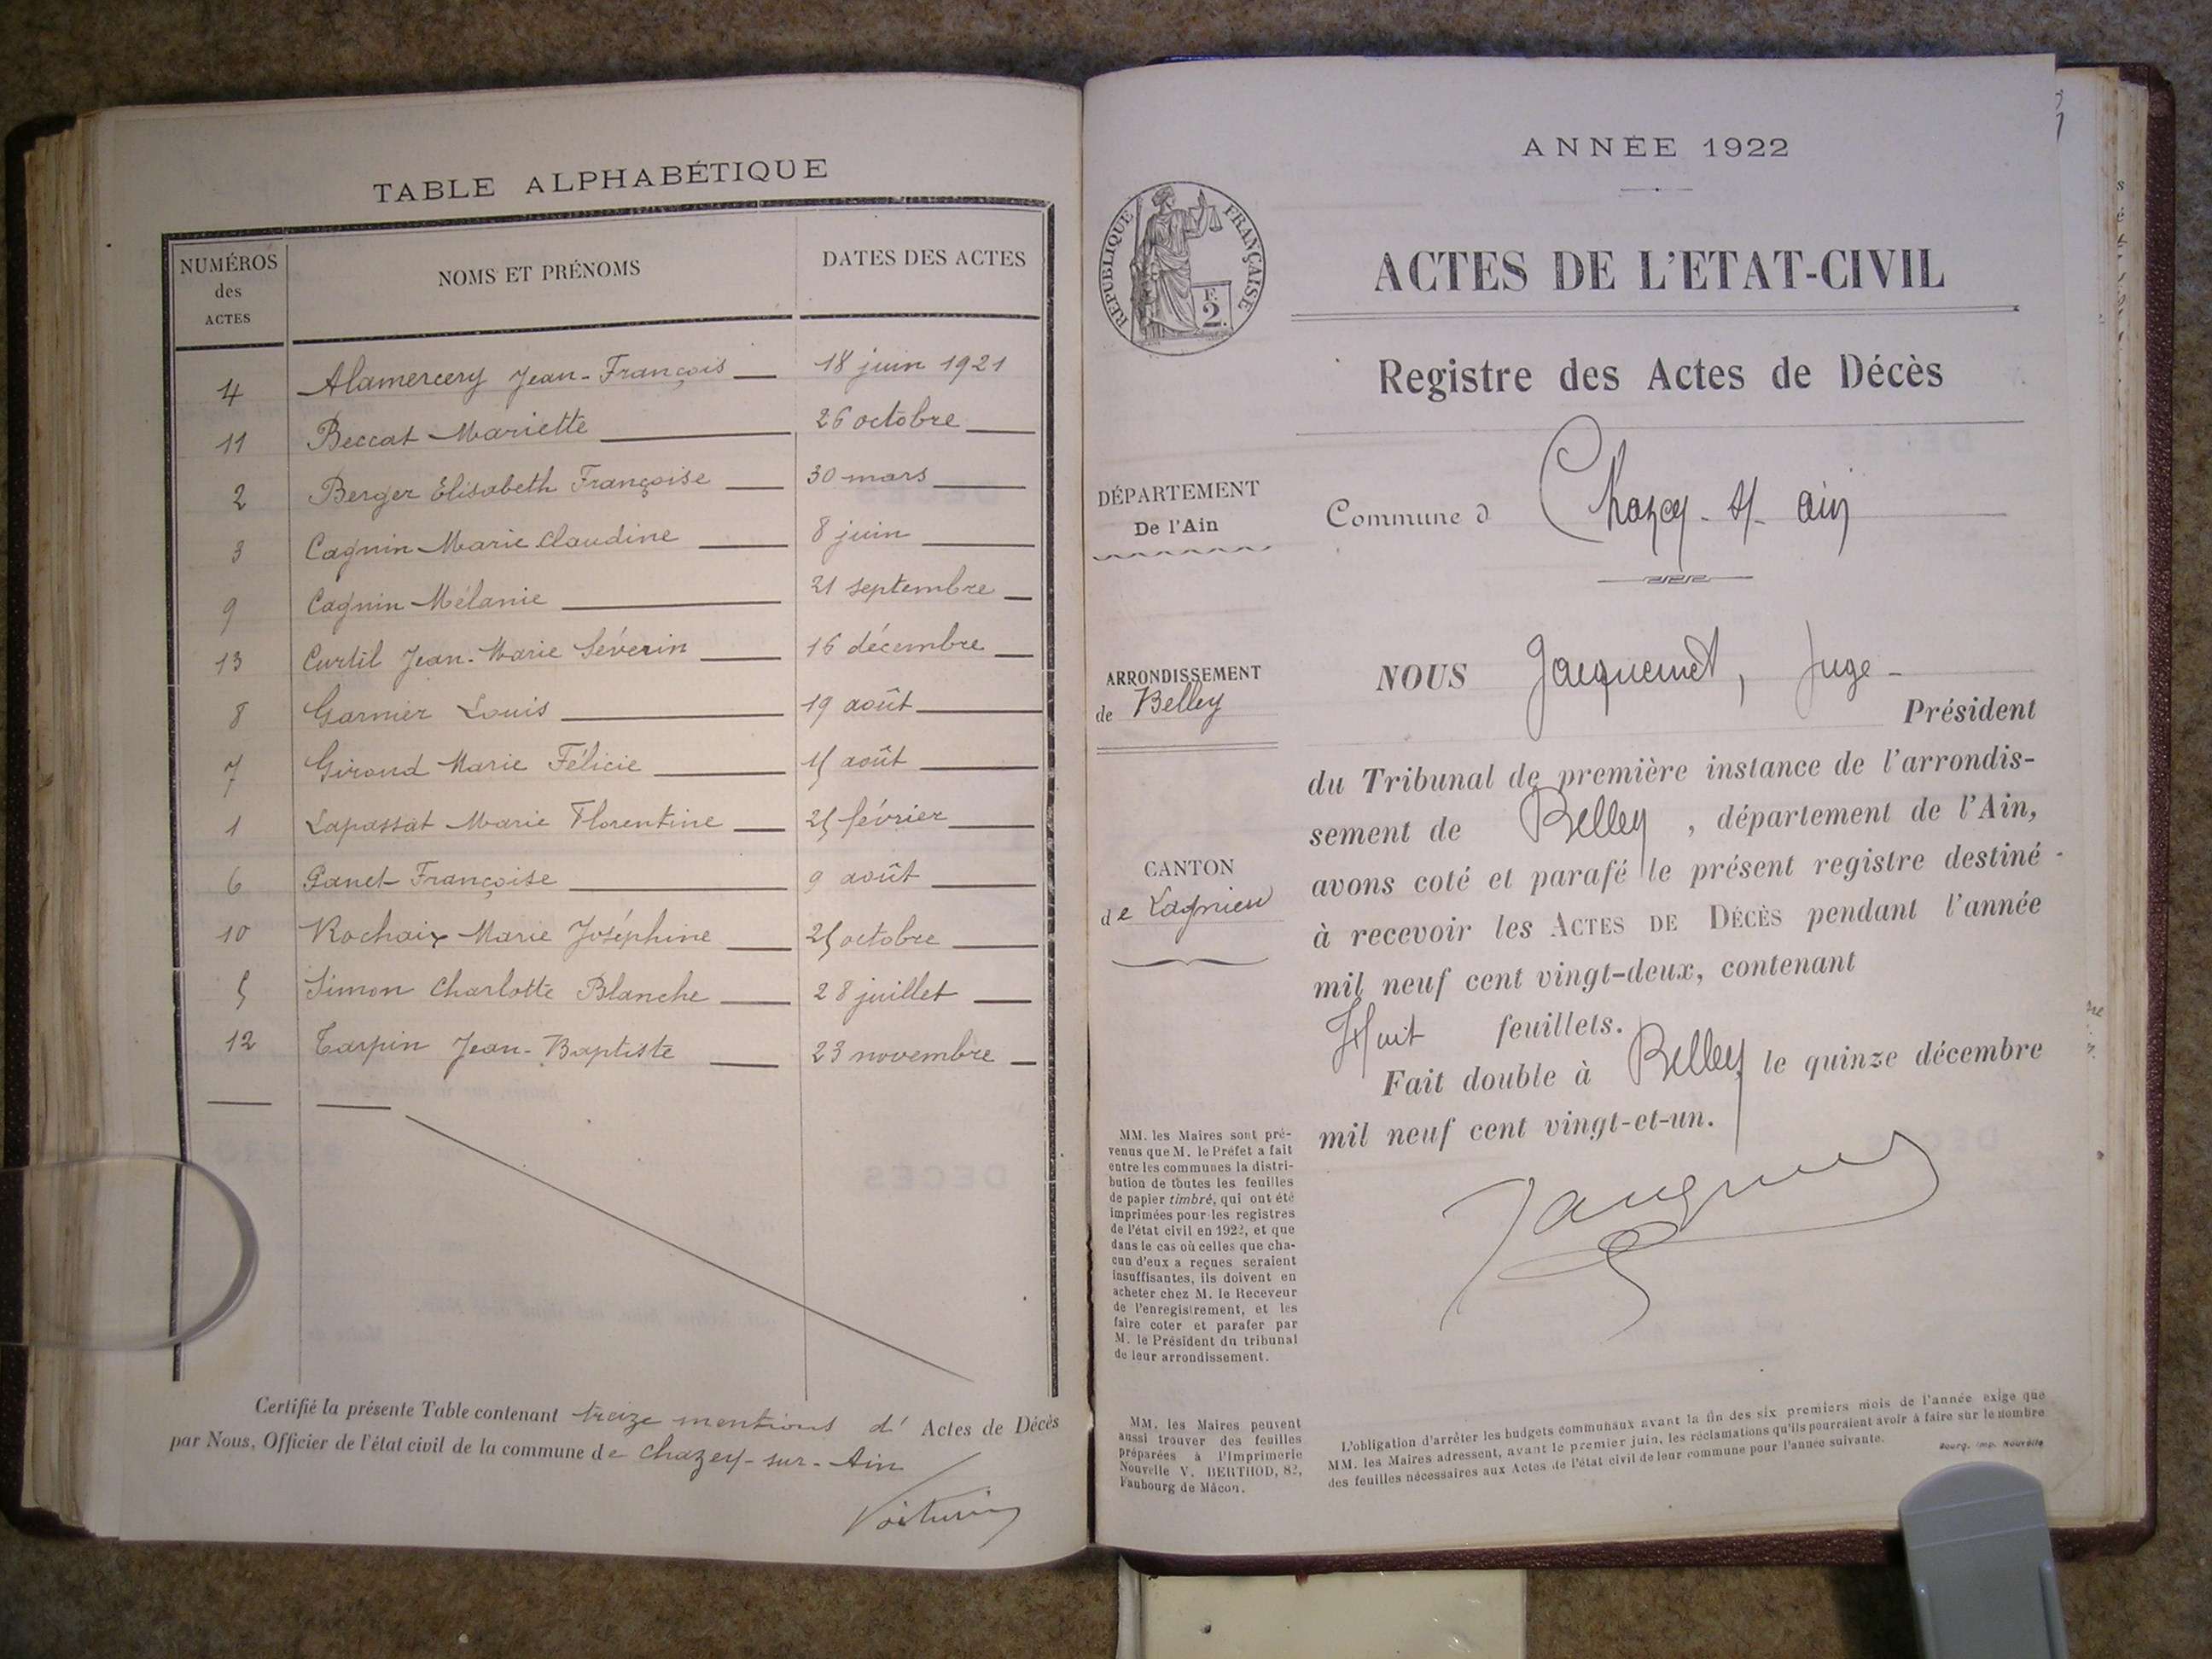 TABLE ALPHABÉTIQUE
NUMÉROS
des
ACTES
NOMS ET PRÉNOMS
DATES DES ACTES
4 Alamercery Jean-François 18 juin 1921
11 Beccat Mariette 26 octobre
2 Berger Elisabeth Françoise 30 mars
3 Cagnin Marie Claudine 8 juin
9 Cagnin Mélanie 21 septembre
13 Curtil Jean-Marie Séverin 16 décembre
8 Garnier Louis 19 août
7 Giroud Marie Félicie 15 août
1 Lapassat Marie Florentine 25 février
6 Panet Françoise 9 août
10 Rochaix Marie Joséphine 25 octobre
5 Simon Charlotte Blanche 28 juillet
12 Tarpin Jean-Baptiste 23 novembre
Certifié la présente Table contenant treize mentions d' Actes de Décès
par Nous, Officier de l'état civil de la commune de Chazey-sur-Ain
ANNÉE 1922
RÉPUBLIQUE FRANÇAISE
F.
2.
ACTES DE L'ETAT-CIVIL
Registre des Actes de Décès
DÉPARTEMENT
De l'Ain
Commune d Chazey-s/-ain
ARRONDISSEMENT
de Belley
CANTON
de Lagnieu
NOUS Jacquemet, Juge-
Président
du Tribunal de première instance de l'arrondis-
sement de Belley, département de l'Ain,
avons coté et parafé le présent registre destiné
à recevoir les ACTES DE DÉCÈS pendant l'année
mil neuf cent vingt-deux, contenant
Huit feuillets.
Fait double à Belley le quinze décembre
mil neuf cent vingt-et-un.
MM. les Maires sont pré-
venus que M. le Préfet a fait
entre les communes la distri-
bution de toutes les feuilles
de papier timbré, qui ont été
imprimées pour les registres
de l'état civil en 1922, et que
dans le cas où celles que cha-
cun d'eux a reçues seraient
insuffisantes, ils doivent en
acheter chez M. le Receveur
de l'enregistrement, et les
faire coter et parafer par
M. le Président du tribunal
de leur arrondissement.
MM. les Maires peuvent
aussi trouver des feuilles
préparées à l'Imprimerie
Nouvelle V. BERTHOD, 82,
Faubourg de Mâcon.
L'obligation d'arrêter les budgets communaux avant la fin des six premiers mois de l'année exige que
MM. les Maires adressent, avant le premier juin, les réclamations qu'ils pourraient avoir à faire sur le nombre
des feuilles nécessaires aux Actes de l'état civil de leur commune pour l'année suivante.
Bourg. Imp. Nouvelle